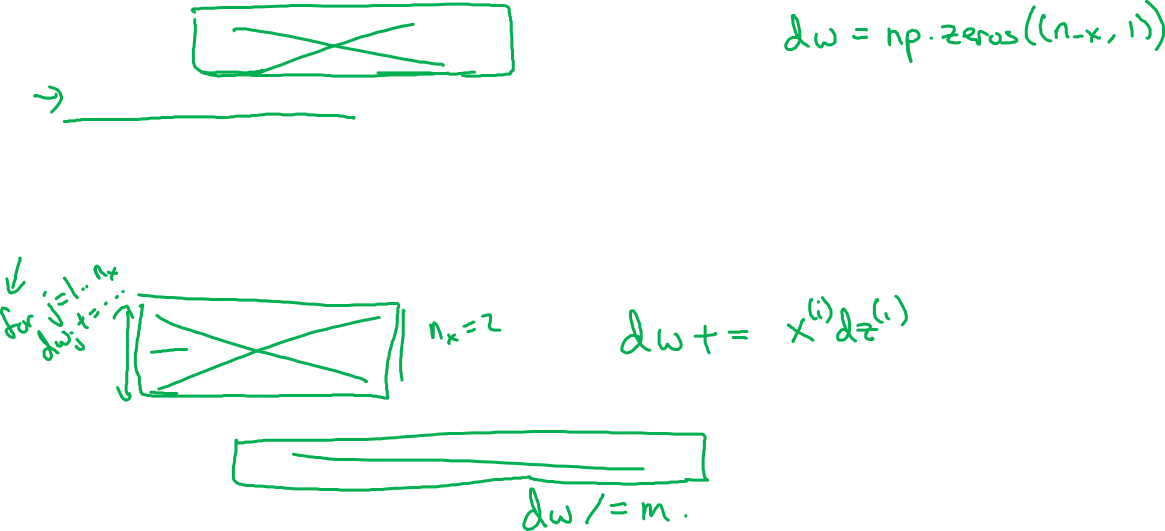 dw = np.zeros((n-x, 1))
for j=1..nₓ
dwⱼ += ...
nₓ=2
dw += x⁽ⁱ⁾dz⁽ⁱ⁾
dw /= m.